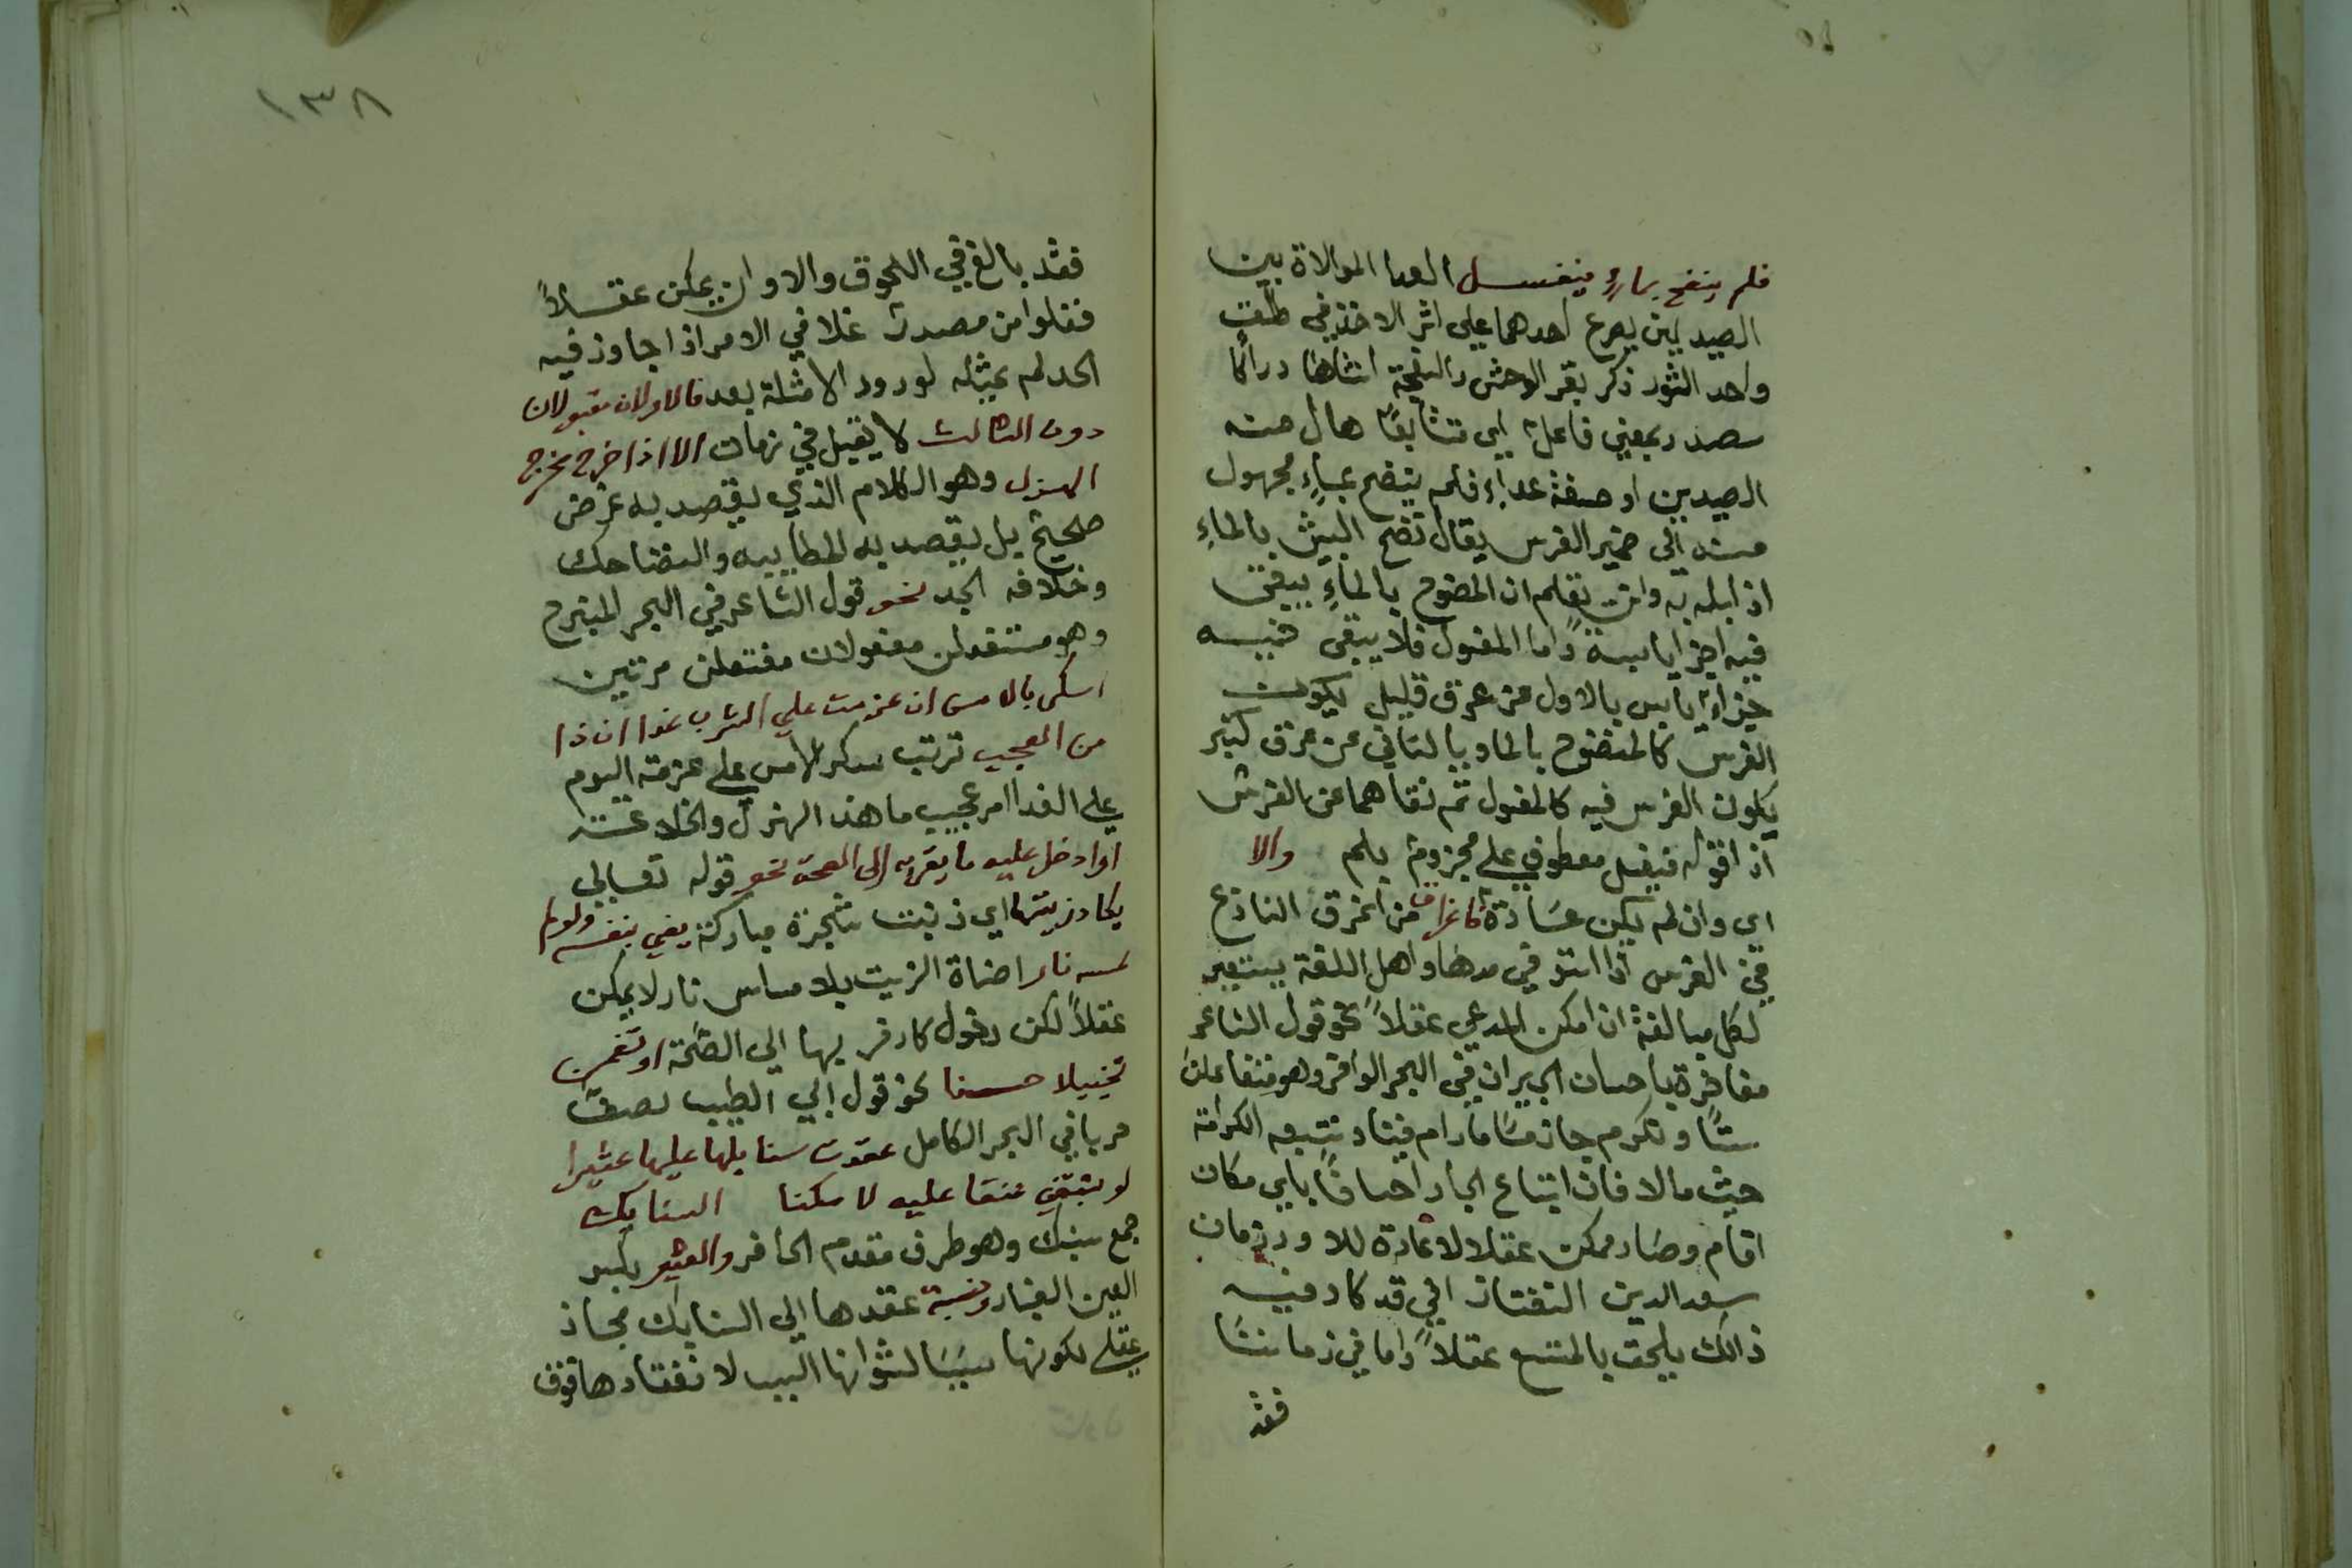 فلم ينضح بماء فيغسل العدا الموالاة بين
الصيدين يصرع احدهما على اثر الاخذ في طلق
واحد الثور ذكر بقر الوحش والنعجة انثاها دراكا
مصدر بمعني فاعل اي متتابعًا حال منه
الصيدين او صفة عداء فلم ينضح بماءٍ مجهول
مسند الى ضمير الفرس يقال نضح البيت بالماءِ
اذا بله به وانت تعلم ان المنضوح بالماءِ يبقى
فيه اجزا يابسة واما المغسول فلا يبقى فيه
جزاء يابس بالاول عن عرق قليل يكون
الفرس كالمنضوح بالما وبالثاني عن عرق كثير
يكون الفرس فيه كالمغسول ثم نفاهما عن الفرس
اذا قوله فيغسل معطوف على مجزوم بلم والا
اى وان لم يكن عادة فاغراق من اغرق النازع
في القوس اذا استوفي مدها واهل اللغة
لكل مبالغة ان امكن المدعي عقلاً نحو قول الشاعر
مفاخرة باحسان الجيران في البحر الوافر وهو مفاعلتن
ستًا ونكرم جارنا مادام فينا ونتبعه الكرامة
حيث مالا فان اتباع الجار احسانًا باي مكان
اقام وصار ممكن عقلا لا عادة للا ود زمان
سعد الدين التفتازاني قد كاد فيه
ذالك يلحق بالممتنع عقلاً واما في زماننا
فقد
١٣٨
فقد بالغ في اللحوق والا وان يمكن عقلاً
فغلوا من مصدر غلا في الامر اذا جاوز فيه
الحد لم يمثله لورود الامثلة بعد فالاولان مقبولان
دون الثالث لا يقبل في زمان الا اذا خرج مخرج
الهزل وهو الكلام الذي يقصد به غرض
صحيح بل يقصد به المطايبه والتضاحك
وخلافه الجد نحو قول الشاعر في البحر المنسرح
وهو مستفعلن مفعولات مفتعلن مرتين
اسكر بالامس ان عزمت علي الشرب غدا ان ذا
من العجب ترتب سكر الامس على عزمه اليوم
على الغدا امر عجيب ما هذا الهزل والخلاعة
او ادخل عليه ما يقربه الى الصحة نحو قوله تعالي
يكاد زيتها اي زيت شجرة مباركة يضي بنفسه ولو لم
تمسه نار اضاة الزيت بلا مساس نار لا يمكن
عقلاً لكن دخول كاد قربها الي الصحة او تضمن
تخييلا حسنا نحو قول ابي الطيب يصف
حربا في البحر الكامل عقدت سنابكها عليها عثيرا
لو تبتغي عنقا عليه لامكنا السنابك
جمع سنبك وهو طرف مقدم الحافر والعثير بكسر
العين الغبار ونسبة عقدها الي السنابك مجاز
عقلي لكونها سببًا لثورانها السبب لا نعقادها فوق